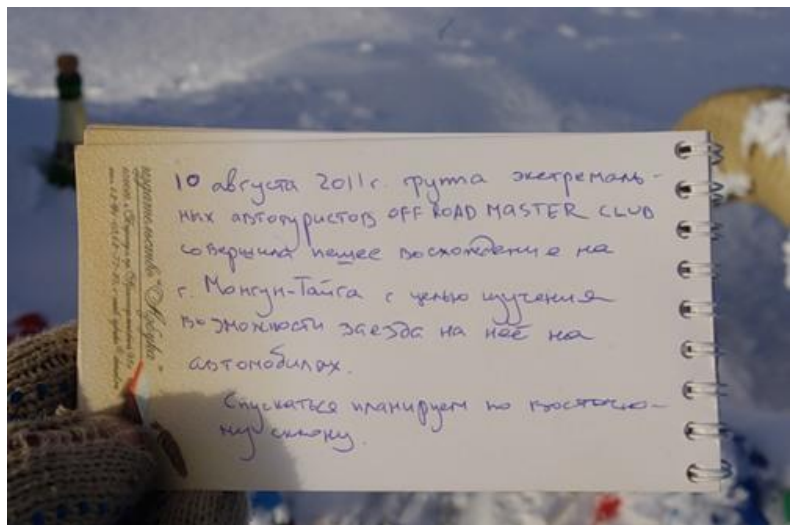 10 августа 2011 г. группа экстремаль-
ных автотуристов OFF ROAD MASTER CLUB
совершила пешее восхождение на
г. Монгун-Тайга с целью изучения
возможности заезда на неё на
автомобилях.
Спускаться планируем по восточно-
му склону.
издательство "Азбука"